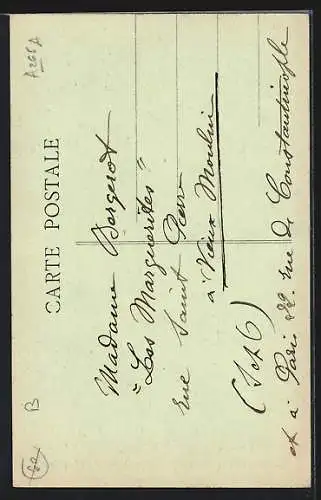 CARTE POSTALE
Madame Bergerot
"Les Marguerites"
rue Saint Pierre
à Vieux Moulin
(S et O)
et à Paris 82. rue de Constantinople
A268A
B